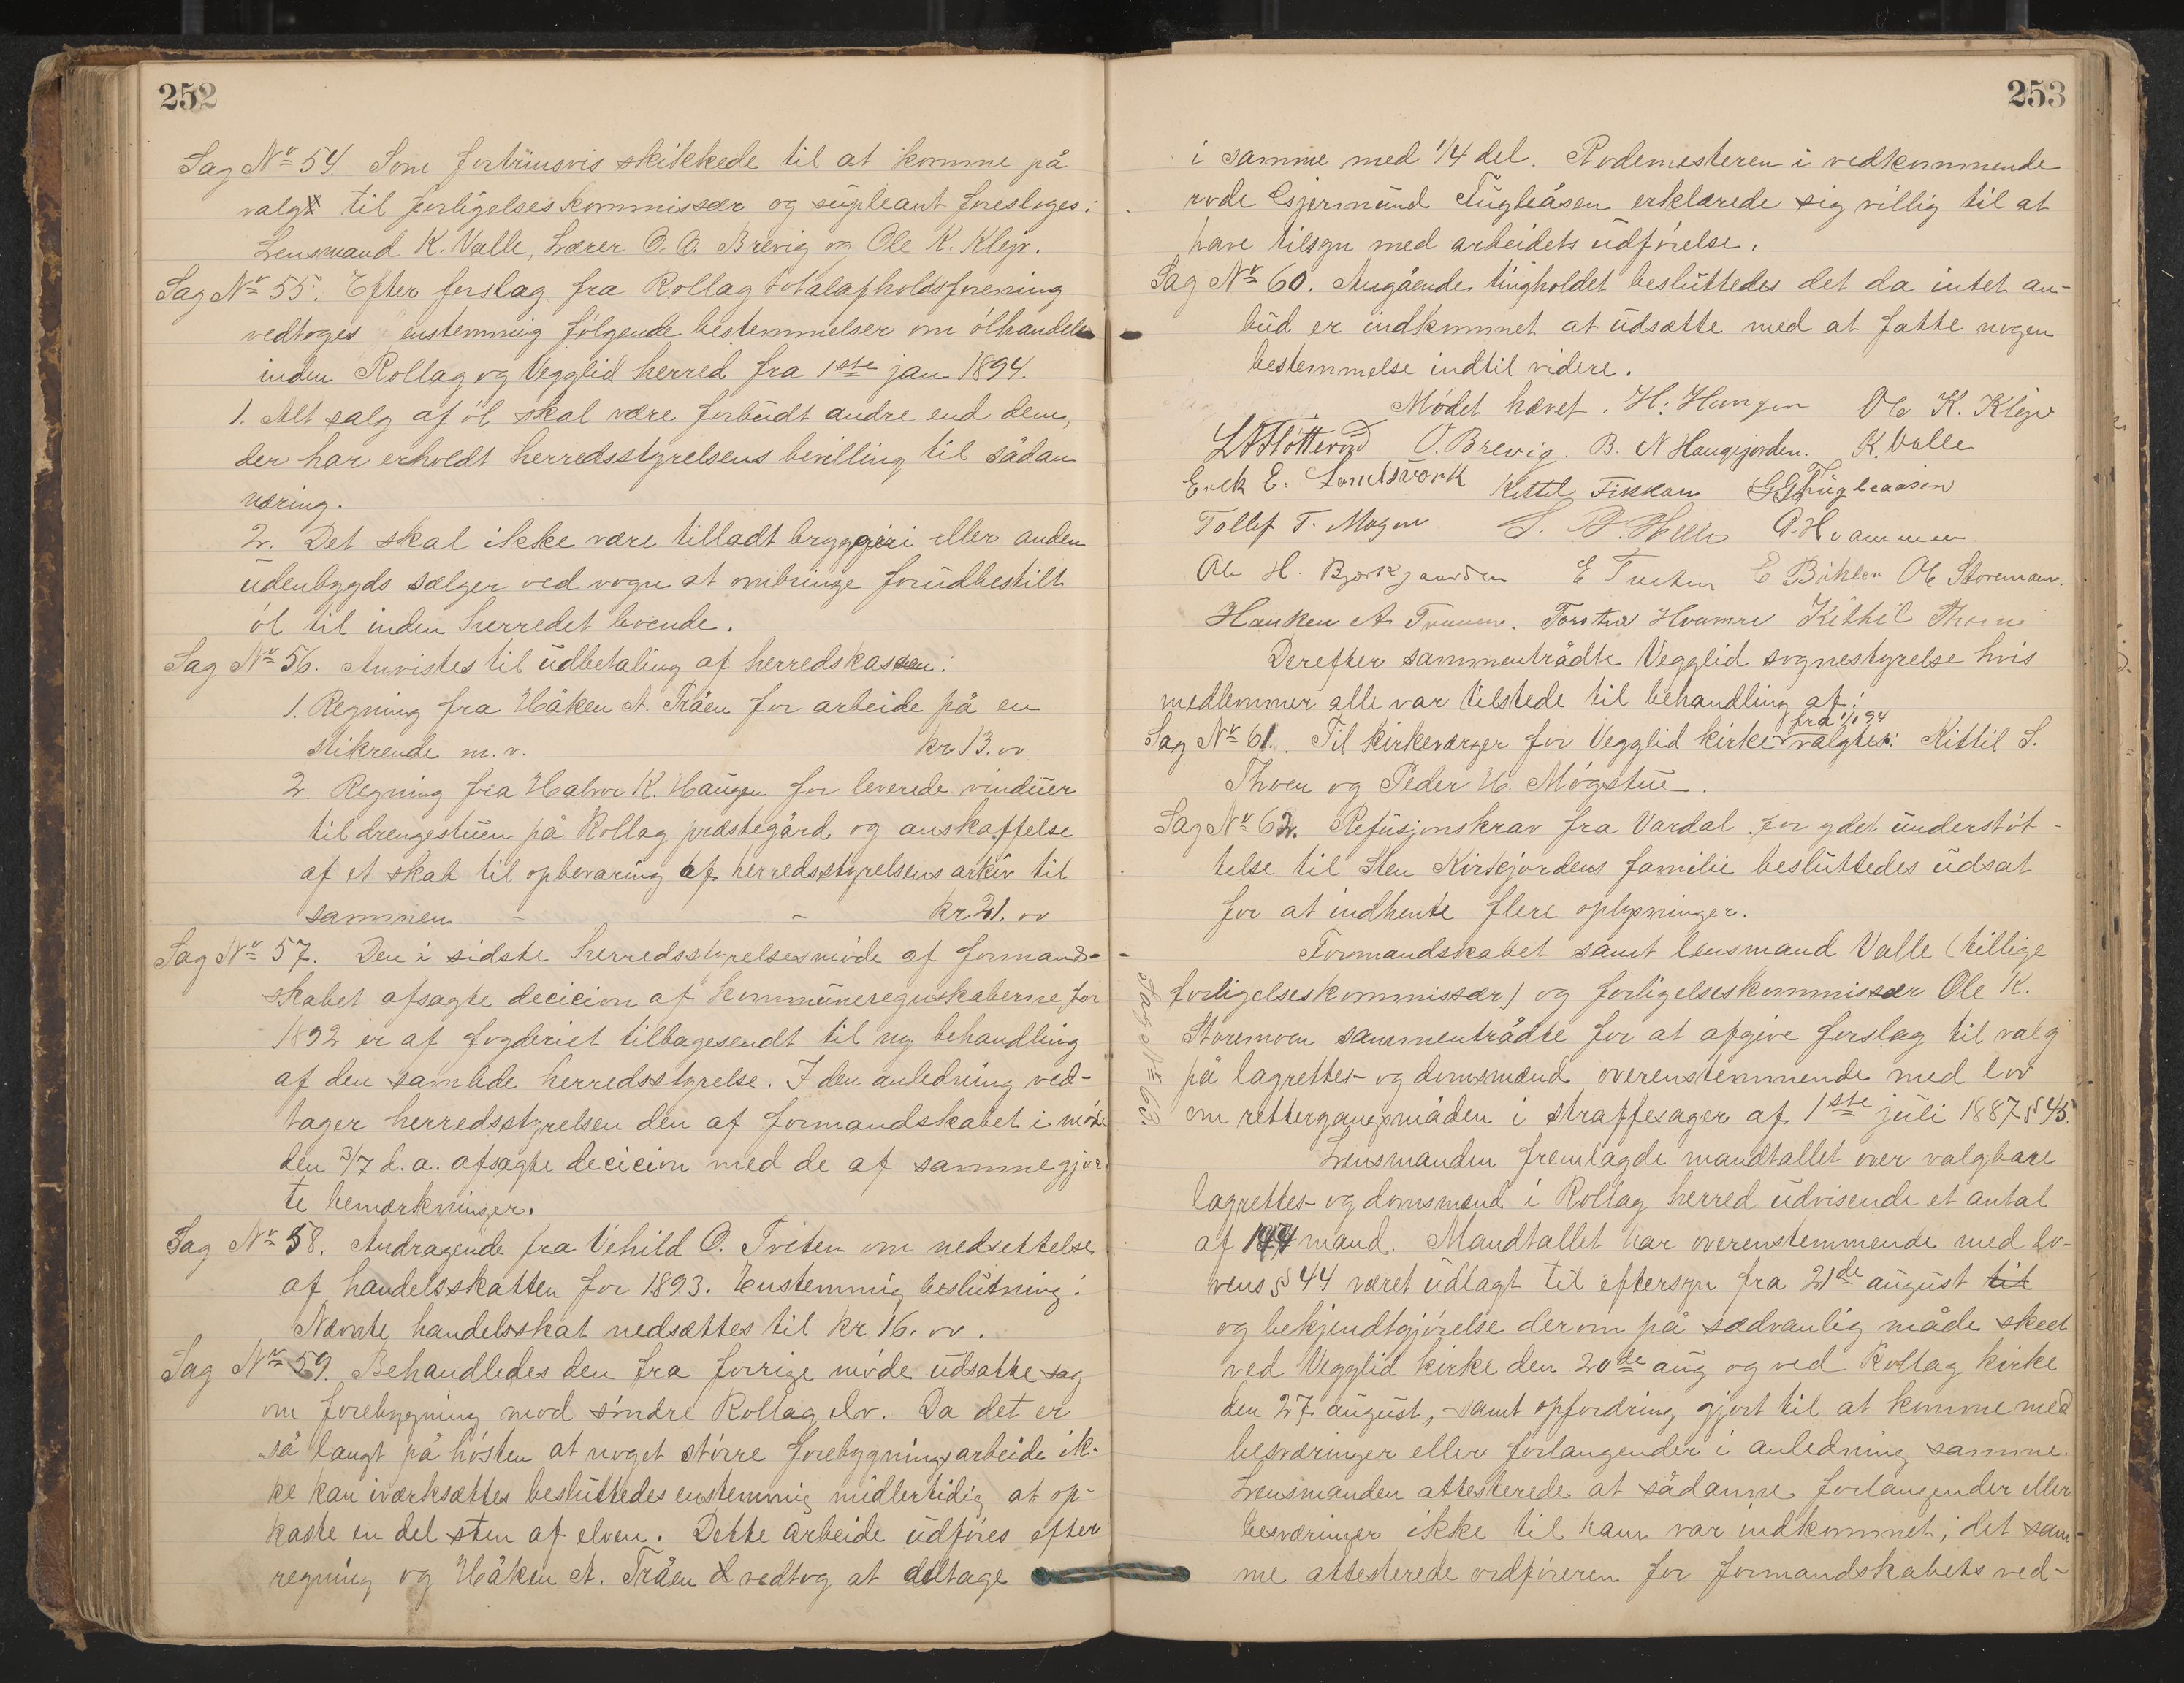 252
Sag Nr 54. Som fortrinsvis skikkede til at komme på
valg til forligelseskommissær og supleant foresloges:
Lensmand K. Valle, Lærer O. O. Brevig og Ole K. Klejv.
Sag Nr 55. Efter forslag fra Rollag totalafholdsforening
vedtoges enstemmig følgende bestemmelser om ølhandelen
inden Rollag og Vegglid herred fra 1ste jan 1894.
1. Alt salg af øl skal være forbudt andre end dem,
der har erholdt herredsstyrelsens bevilling til sådan
næring.
2. Det skal ikke være tilladt bryggeri eller anden
udenbygds sælger ved vogn at ombringe forudbestilt
øl til inden herredet boende.
Sag Nr 56. Anvistes til udbetaling af herredskassen:
1. Regning fra Håken A. Tråen for arbeide på en
stikrende m.v. kr 13.00
2. Regning fra Halvor K. Haugen for leverede vinduer
til drengestuen på Rollag præstegård og anskaffelse
af et skab til opbevaring af herredsstyrelsens arkiv til
sammen - - kr 21.00
Sag Nr 57. Den i sidste herredsstyrelsesmøde af formand-
skabet afsagte decicion af kommuneregnskaberne for
1892 er af fogderiet tilbagesendt til ny behandling
af den samlede herredsstyrelse. I den anledning ved-
tager herredsstyrelsen den af formandskabet i møde
den 3/7 d.a. afsagte decicion med de af samme gjor-
te bemærkninger.
Sag Nr 58. Andragende fra Vehild O. Tveten om nedsettelse
af handelsskatten for 1893. Enstemmig beslutning:
Nævnte handelsskat nedsættes til kr 16.00.
Sag Nr 59. Behandledes den fra forrige møde udsatte sag
om forebygning mod søndre Rollag elv. Da det er
så langt på høsten at noget større forebygningsarbeide ik-
ke kan iværksættes besluttedes enstemmig midlertidig at op-
kaste en del sten af elven. Dette arbeide udføres efter
regning og Håken A. Tråen vedtog at deltage
253
i samme med 1/4 del. Rodemesteren i vedkommende
rode Gjermund Fugleåsen erklærede sig villig til at
have tilsyn med arbeidets udførelse.
Sag Nr 60. Angående tingholdet besluttedes det da intet an-
bud er indkommet at udsætte med at fatte nogen
bestemmelse indtil videre.
Mødet hævet. H. Haugen Ole K. Klejv
O. Brevig. B. N. Haugejorden. K. Valle
Erek E. Kittil Fikkan Fugleaasen
Tollef T. Mogen A. Hvammen
Ole H. Bjørkjorden E Tveten Ole Storemoen.
Hauken A Traaen. Torsten Hvamm Kittil Thoen
Derefter sammentrådte Vegglid sognestyrelse hvis
medlemmer alle var tilstede til behandling af:
Sag Nr 61. Til kirkeværger for Vegglid kirke fra 1/1 94 valgtes: Kittil S.
Thoen og Peder H. Møgstue.
Sag Nr 62. Refusjonskrav fra Vardal for ydet understøt-
telse til Sten Kirkjordens familie besluttedes udsat
for at indhente flere oplysninger.
Sag Nr 63.
Formandskabet samt lensmand Valle (tillige
forligelseskommissær) og forligelseskommissær Ole K.
Storemoen sammentrådte for at afgive forslag til valg
på lagrettes- og domsmænd overenstemmende med lov
om rettergangsmåden i straffesager af 1ste juli 1887 § 45.
Lensmanden fremlagde mandtallet over valgbare
lagrettes- og domsmænd i Rollag herred udvisende et antal
af 144 mand. Mandtallet har overenstemmende med lo-
vens § 44 været udlagt til eftersyn fra 21de august til
og bekjendtgjørelse derom på sædvanlig måde skeet
ved Vegglid kirke den 20de aug og ved Rollag kirke
den 27 august, samt opfordring gjort til at komme med
besværinger eller forlangender i anledning samme.
Lensmanden attesterede at sådanne forlangender eller
besværinger ikke til ham var indkommet; det sam-
me attesterede ordføreren for formandskabets ved-